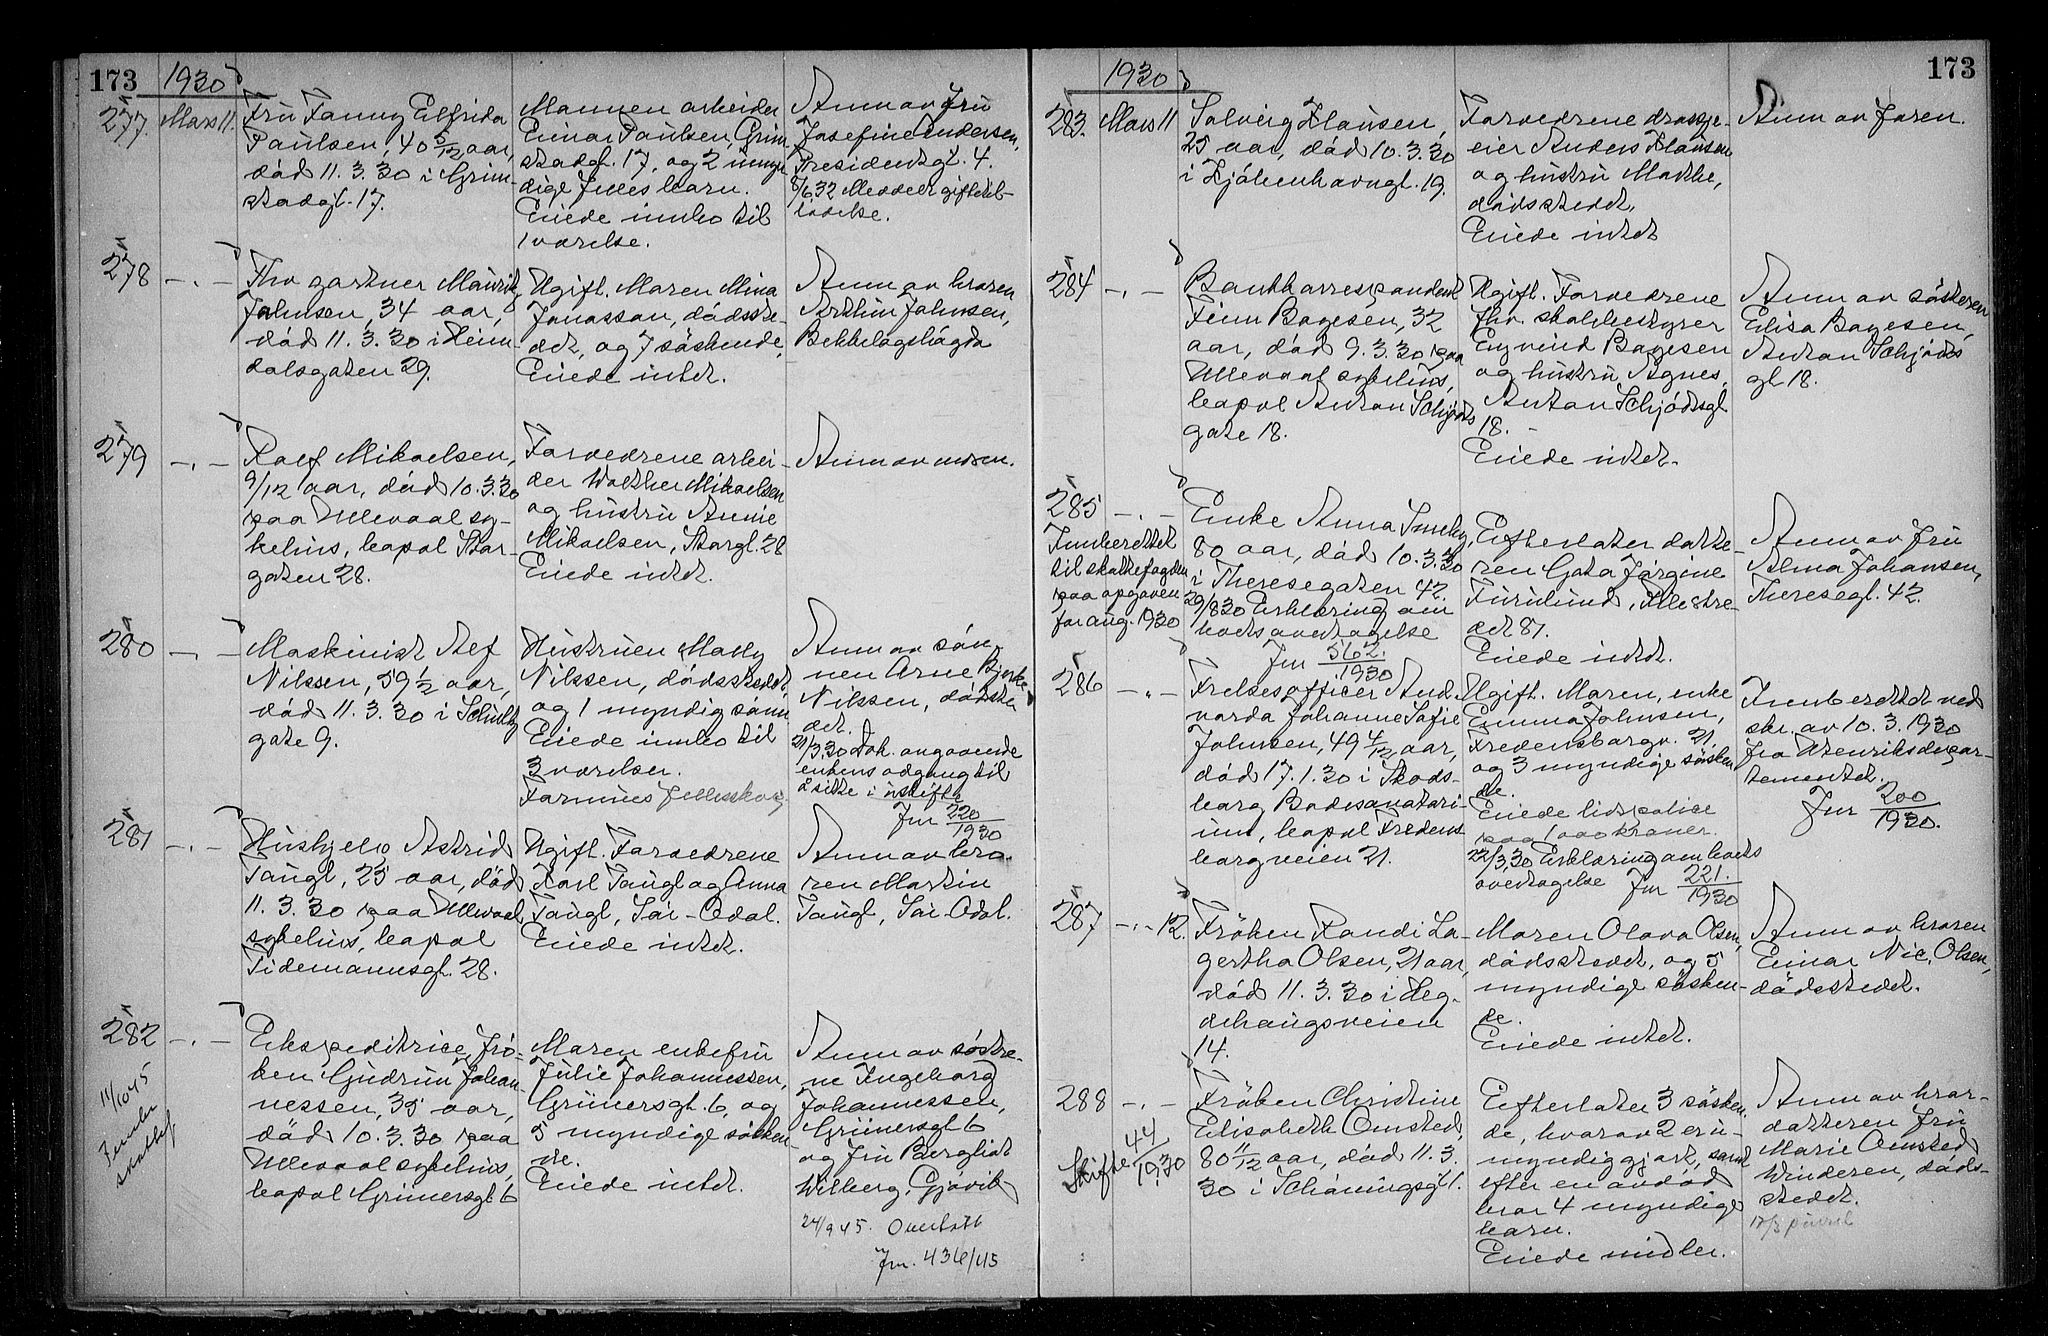 173
1930
277.
Mars 11.
Fru Fanny Elfrida
Paulsen, 40 5/12 aar,
död 11.3.30 i Grim-
stadgt. 17.
Mannen arbeider
Einar Paulsen, Grim-
stadgt. 17, og 2 umyn-
dige felles barn.
Eiede innbo til
1 værelse.
Anm av fru
Josefine Andersen,
Presidentgt. 4.
8/6 32 Meddelt giftetil-
ladelse.
278
-.-
Fhv gartner Mauritz
Johnsen, 34 aar,
död 11.3.30 i Heim-
dalsgaten 29.
Ugift. Moren Mina
Jonasson, dödsste-
det, og 7 söskende.
Eiede intet.
Anm av broren
Arthur Johnsen,
Bekkelagshögda
279
-.-
Rolf Mikaelsen,
9/12 aar, död 10.3.30
paa Ullevaal sy-
kehus, bopæl Stor-
gaten 28.
Forældrene arbei-
der Walther Mikaelsen
og hustru Annie
Mikaelsen, Storgt. 28
Eiede intet.
Anm av moren.
280
-.-
Maskinist Alf
Nilssen, 59 1/2 aar,
död 11.3.30 i Schultz
gate 9.
Hustruen Mally
Nilssen, dödsstedet,
og 1 myndig sönn.
Eiede innbo til
3 værelser.
Formues fellesskap
Anm av sön-
nen Arne Bjerke
Nilssen, dödste-
det.
21/3.30 Dok. angaaende
enkens adgang til
å sitte i uskifte
Jnr 220/1930
281
-.-
Hushjelp Astrid
Taugl, 25 aar, död
11.3.30 paa Ullevaal
sykehus, bopæl
Tidemannsgt. 28.
Ugift. Forældrene
Karl Taugl og Anna
Taugl, Sör-Odal.
Eiede intet.
Anm av bro-
ren Martin
Taugl, Sör-Odal.
282
-.-
11/10 45
skattef
Ekspeditrice, frö-
ken Gudrun Johan-
nessen, 35 aar,
död 10.3.30 paa
Ullevaal sykehus,
bopæl Grünersgt 6
Moren enkefru
Julie Johannessen,
Grünersgt. 6, og
5 myndige sösken-
de.
Eiede intet.
Anm av söstre-
ne Ingeborg
Johannessen,
Grünersgt 6
og fru Bergliot
Wilberg, Gjövik
24/9 45. Overtatt
Jnr. 436/45
173
1930
283.
Mars 11
Solveig Klausen,
25 aar, död 10.3.30
i Kjöbenhavngt. 19.
Forældrene drosje-
eier Anders Klausen
og hustru Marthe,
dödsstedet.
Eiede intet
Anm av faren.
284
-.-
Bankkorrespondent
Finn Bogesen, 32
aar, död 9.3.30 paa
Ullevaal sykehus,
bopæl Anton Schjödts
gate 18.
Ugift. Forældrene
fhv. skolebestyrer
Eyvind Bogesen
og hustru Agnes,
Anton Schjödtsgt
18.
Eiede intet.
Anm av sösteren
Elisa Bogesen,
Anton Schjödts
gt 18.
285
-.-
Innberettet
til skattefogden
paa opgaven
for aug. 1930
Enke Anna Smeby,
80 aar, död 10.3.30
i Theresegaten 42.
29/8 30 Erklæring om
boets overtagelse
Jnr 562/1930
Efterlater datte-
ren Gota Jörgine
Furulund,
det 87.
Eiede intet.
Anm av fru
Alma Johansen,
Theresegt. 42.
286
-.-
Frelsesofficer And-
varda Johanne Sofie
Johnsen, 49 4/12 aar,
död 17.1.30 i Skods-
borg Badesanatori-
um, bopæl Fredens-
borgveien 21.
Ugift. Moren, enke
Emma Johnsen,
Fredensborgv. 21,
og 3 myndige sösken-
de.
Eiede livspolice
paa 1000 kroner.
22/3.30 Erklæring om boets
overtagelse Jnr 221./1930
Innberettet ved
skr. av 10.3.1930
fra Utenriksdepar-
tementet.
Jnr 200/1930.
287
-.- 12.
Fröken Randi La-
gertha Olsen, 21 aar,
död 11.3.30 i Heg-
dehaugsveien
14.
Moren Olava Olsen,
dödsstedet, og 5
myndige sösken-
de.
Eiede intet.
Anm av broren
Einar Nic. Olsen,
dödsstedet.
288
-.-
Skifte 44/1930
Fröken Christine
Elisabeth Omsted,
80 1/12 aar, död 11.3.
30 i Schöningsgt 1.
Efterlater 3 sösken-
de, hvorav 2 er u-
myndiggjort, samt
efter en avdöd
bror 4 myndige
barn.
Eiede midler.
Anm av bror-
datteren fru
Marie Omsted
Winderen, döds-
stedet.